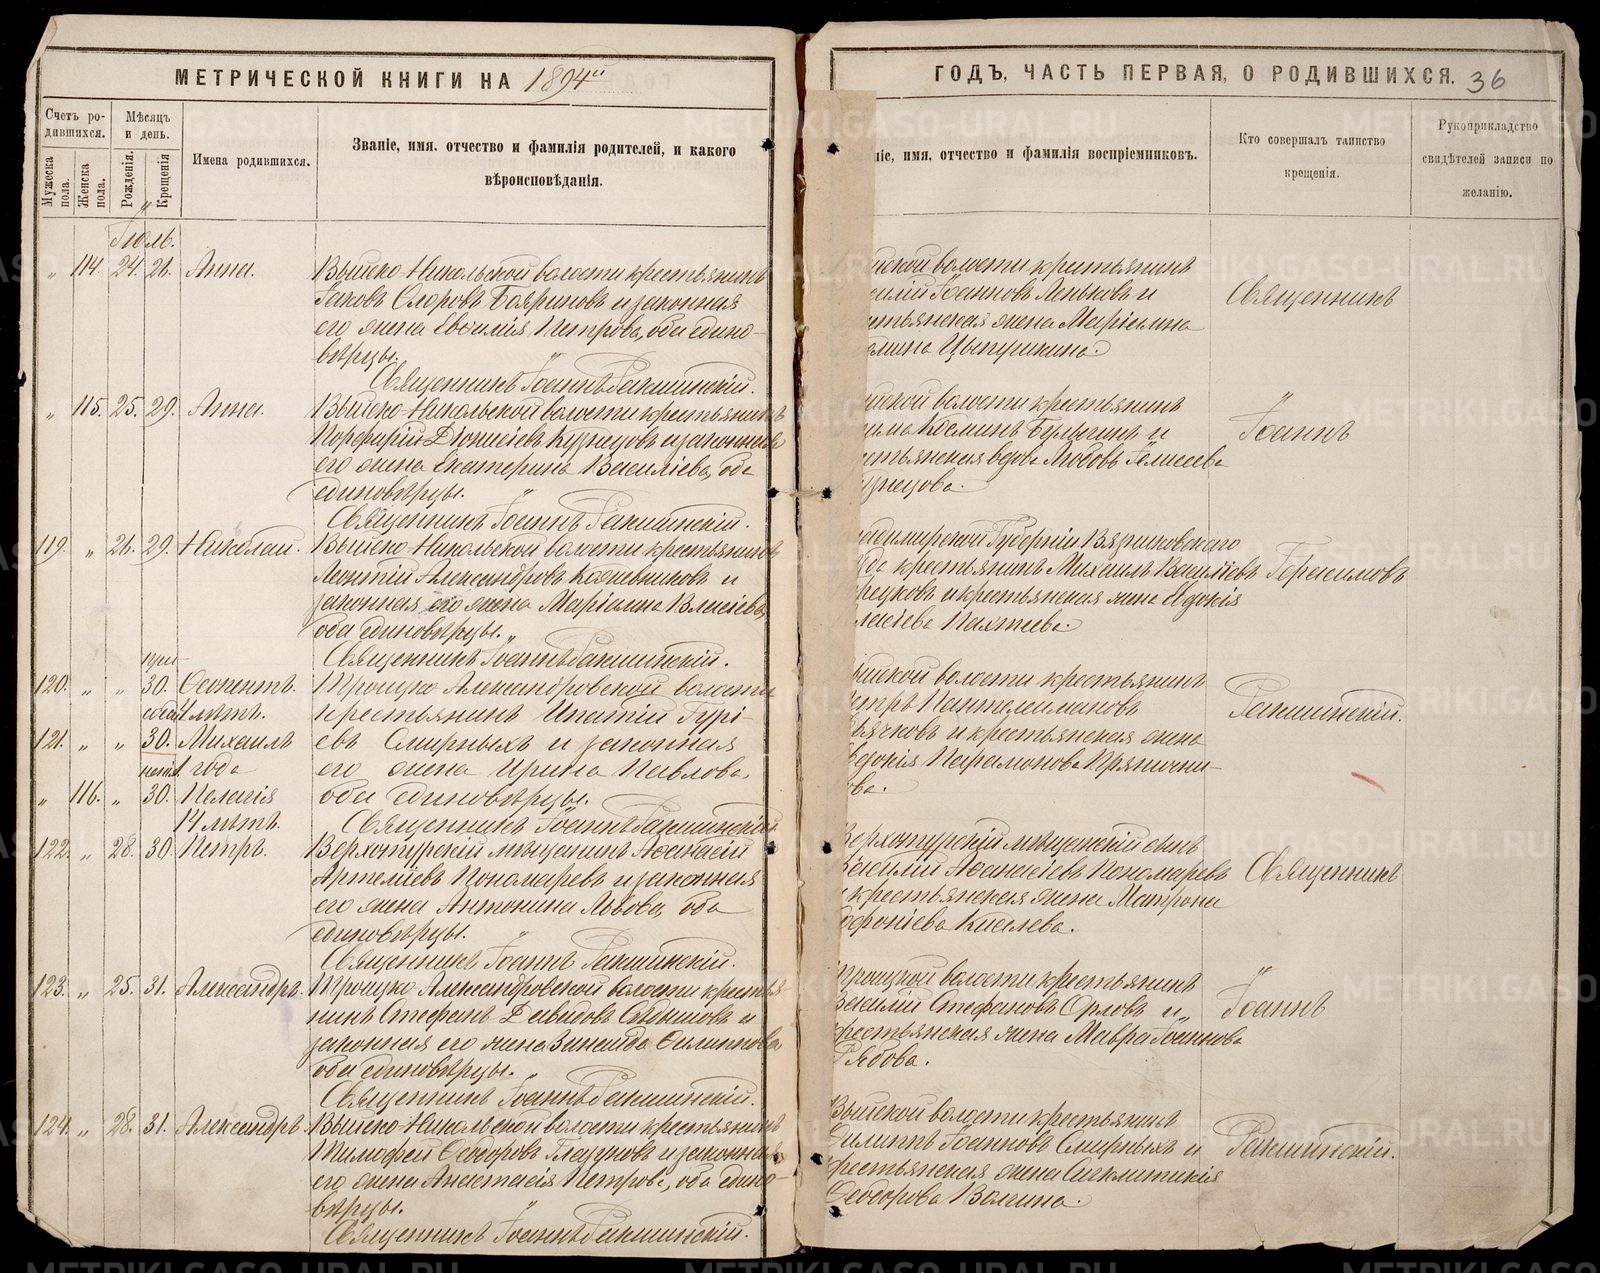 МЕТРИЧЕСКОЙ КНИГИ НА 1894й
ГОДЪ, ЧАСТЬ ПЕРВАЯ, О РОДИВШИХСЯ. 36
Счетъ родившихся.
Мужеска пола.
Женска пола.
Мѣсяцъ и день.
Рожденія.
Крещенія
Имена родившихся.
Званіе, имя, отчество и фамилія родителей, и какого
вѣроисповѣданія.
ніе, имя, отчество и фамилія воспріемниковъ.
Кто совершалъ таинство
крещенія.
Рукоприкладство
свидѣтелей записи по
желанію.
Іюль.
„ 114. 24. 26. Анна. Выйско-Никольской волости крестьянинъ
Іаковъ Бояриновъ и законная
его жена Евфимія Петрова, оба едино-
вѣрцы.
Священникъ Іоаннъ
йской волости крестьянинъ
силій Іоанновъ Леньковъ и
стьянская жена Маріамна
Цыпушкина.
Священникъ
„ 115. 25. 29. Анна. Выйско-Никольской волости крестьянинъ
Порфирій Діонисіевъ Кузнецовъ и законная
его жена Екатерина Василіева, оба
единовѣрцы.
Священникъ Іоаннъ
йской волости крестьянинъ
Косминъ и
стьянская вдова Любовь Елисеева
узнецова.
Іоаннъ
119. „ 26. 29. Николай. Выйско-Никольской волости крестьянинъ
Леонтій Александровъ Кожевниковъ и
законная его жена Маріамна Власіева,
оба единовѣрцы.
Священникъ Іоаннъ
адимирской Губерніи Вязниковскаго
крестьянинъ Михаилъ Василіевъ
и крестьянская жена Евдокія
Герасимовъ
при-
120. „ „ 30. Ѳеопентъ. Троицко-Александровской волости
4 лѣтъ. крестьянинъ Ипатій Гурі-
121. „ „ 30. Михаилъ евъ Смирныхъ и законная
1 года его жена Ирина Павлова,
„ 116. „ 30. Пелагія оба единовѣрцы.
14 лѣтъ. Священникъ Іоаннъ
йской волости крестьянинъ
етръ Пантелеимоновъ
и крестьянская жена
вдокія Парамонова Пряични-
ова.
122. „ 28. 30. Петръ. Верхотурскій мѣщанинъ Аѳанасій
Артеміевъ Пономаревъ и законная
его жена Антонина Львова, оба
единовѣрцы.
Священникъ Іоаннъ
Верхотурскій мѣщанскій сынъ
Василій Аѳанасіевъ Пономаревъ
и крестьянская жена Матрона
офоніева Киселева.
Священникъ
123. „ 25. 31. Александръ. Троицко-Александровской волости крестья-
нинъ Стефанъ Давидовъ и
законная его жена Зинаида Филиппова
оба единовѣрцы.
Священникъ Іоаннъ
Троицкой волости крестьянинъ
Василій Стефановъ Орловъ и
крестьянская жена Мавра Іоаннова
Рябова.
Іоаннъ
124. „ 28. 31. Александръ. Выйско-Никольской волости крестьянинъ
Тимофей Ѳеодоровъ Глазуновъ и законная
его жена Анастасія Петрова, оба едино-
вѣрцы.
Священникъ Іоаннъ
Выйской волости крестьянинъ
Филиппъ Іоанновъ Смирныхъ и
крестьянская жена Синклитикія
Ѳеодорова Волгина.